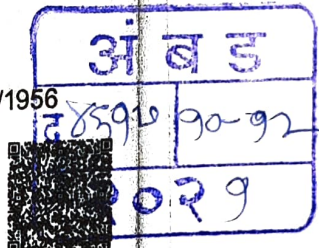 अंबड
/1956
द ४६१७ १०-१२
२०२१